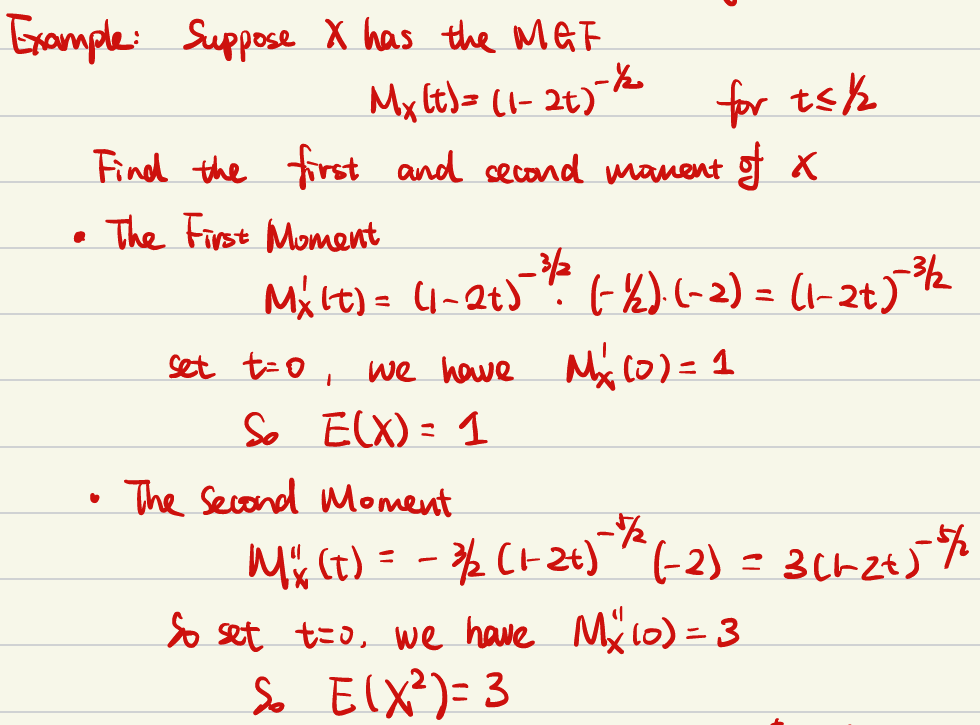 Example: Suppose X has the MGF
M_X(t) = (1-2t)^{-1/2} for t ≤ 1/2
Find the first and second moment of X
• The First Moment
M_X'(t) = (1-2t)^{-3/2} · (-1/2) · (-2) = (1-2t)^{-3/2}
set t=0, we have M_X'(0) = 1
So E(X) = 1
• The Second Moment
M_X''(t) = -3/2 (1-2t)^{-5/2} (-2) = 3(1-2t)^{-5/2}
So set t=0, we have M_X''(0) = 3
So E(X^2) = 3